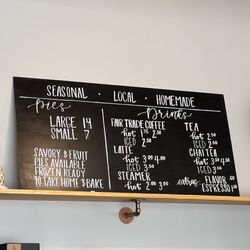 SEASONAL · LOCAL · HOMEMADE
Pies
LARGE 14
SMALL 7
SAVORY & FRUIT
PIES AVAILABLE
FROZEN READY
TO TAKE HOME & BAKE
Drinks
FAIR TRADE COFFEE
hot 1.75 2.50
ICED 2.50
LATTE
hot 3.00 4.00
ICED 3.50
STEAMER
hot 2.00 3.00
TEA
hot 2.50
ICED 2.50
CHAI TEA
hot 3.50 4.50
ICED 4.00
extras: FLAVOR .50
ESPRESSO 1.00